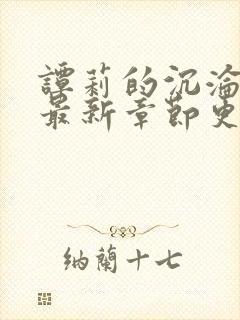 譚莉的沉淪
最新章節更
納蘭十七